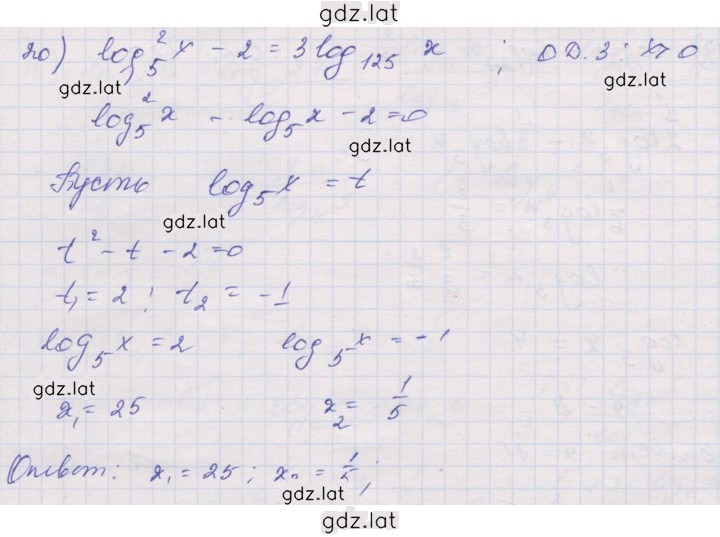 gdz.lat
20) log₅²x - 2 = 3log₁₂₅ x ; ОД.З: x>0
gdz.lat gdz.lat
log₅²x - log₅x - 2 = 0
gdz.lat
Пусть log₅x = t
gdz.lat
t² - t - 2 = 0
t₁ = 2 ; t₂ = -1
log₅x = 2 log₅x = -1
gdz.lat
x₁ = 25 x₂ = 1/5
Ответ: x₁ = 25 ; x₂ = 1/5 ;
gdz.lat
gdz.lat